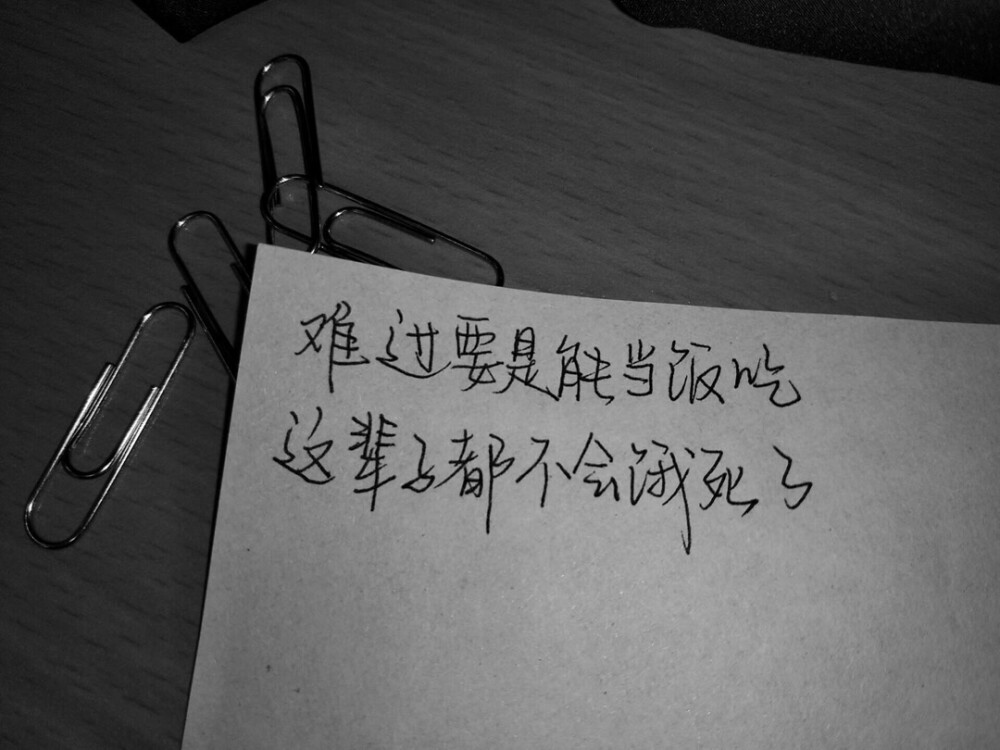 难过要是能当饭吃
这辈子都不会饿死了